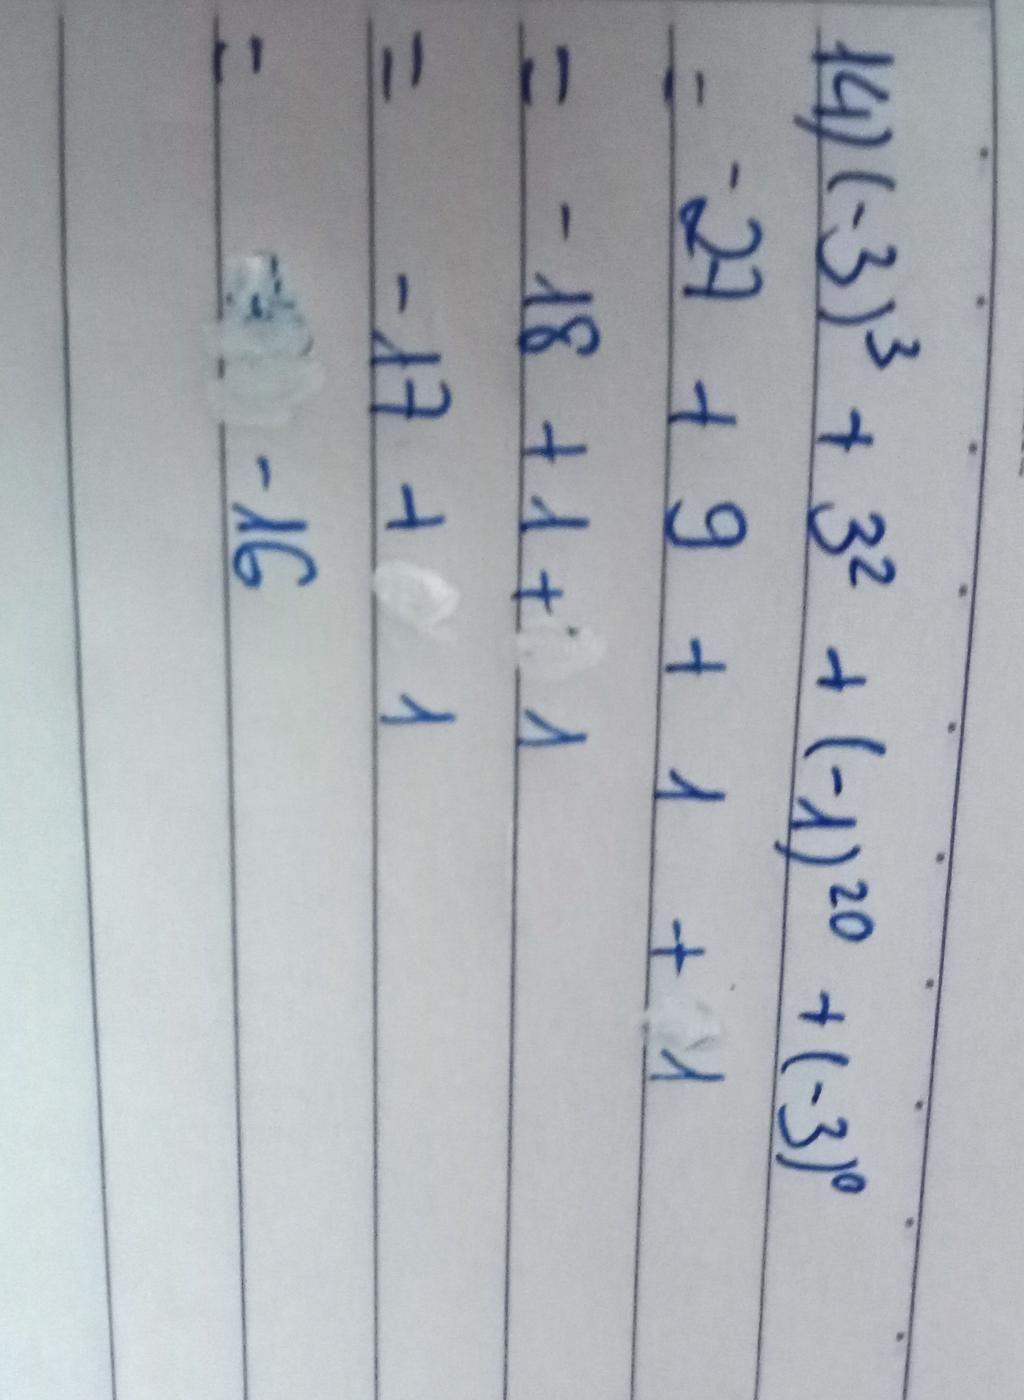 14) (-3)³ + 3² + (-1)²⁰ + (-3)⁰
= -27 + 9 + 1 + 1
= -18 + 1 + 1
= -17 + 1
= -16